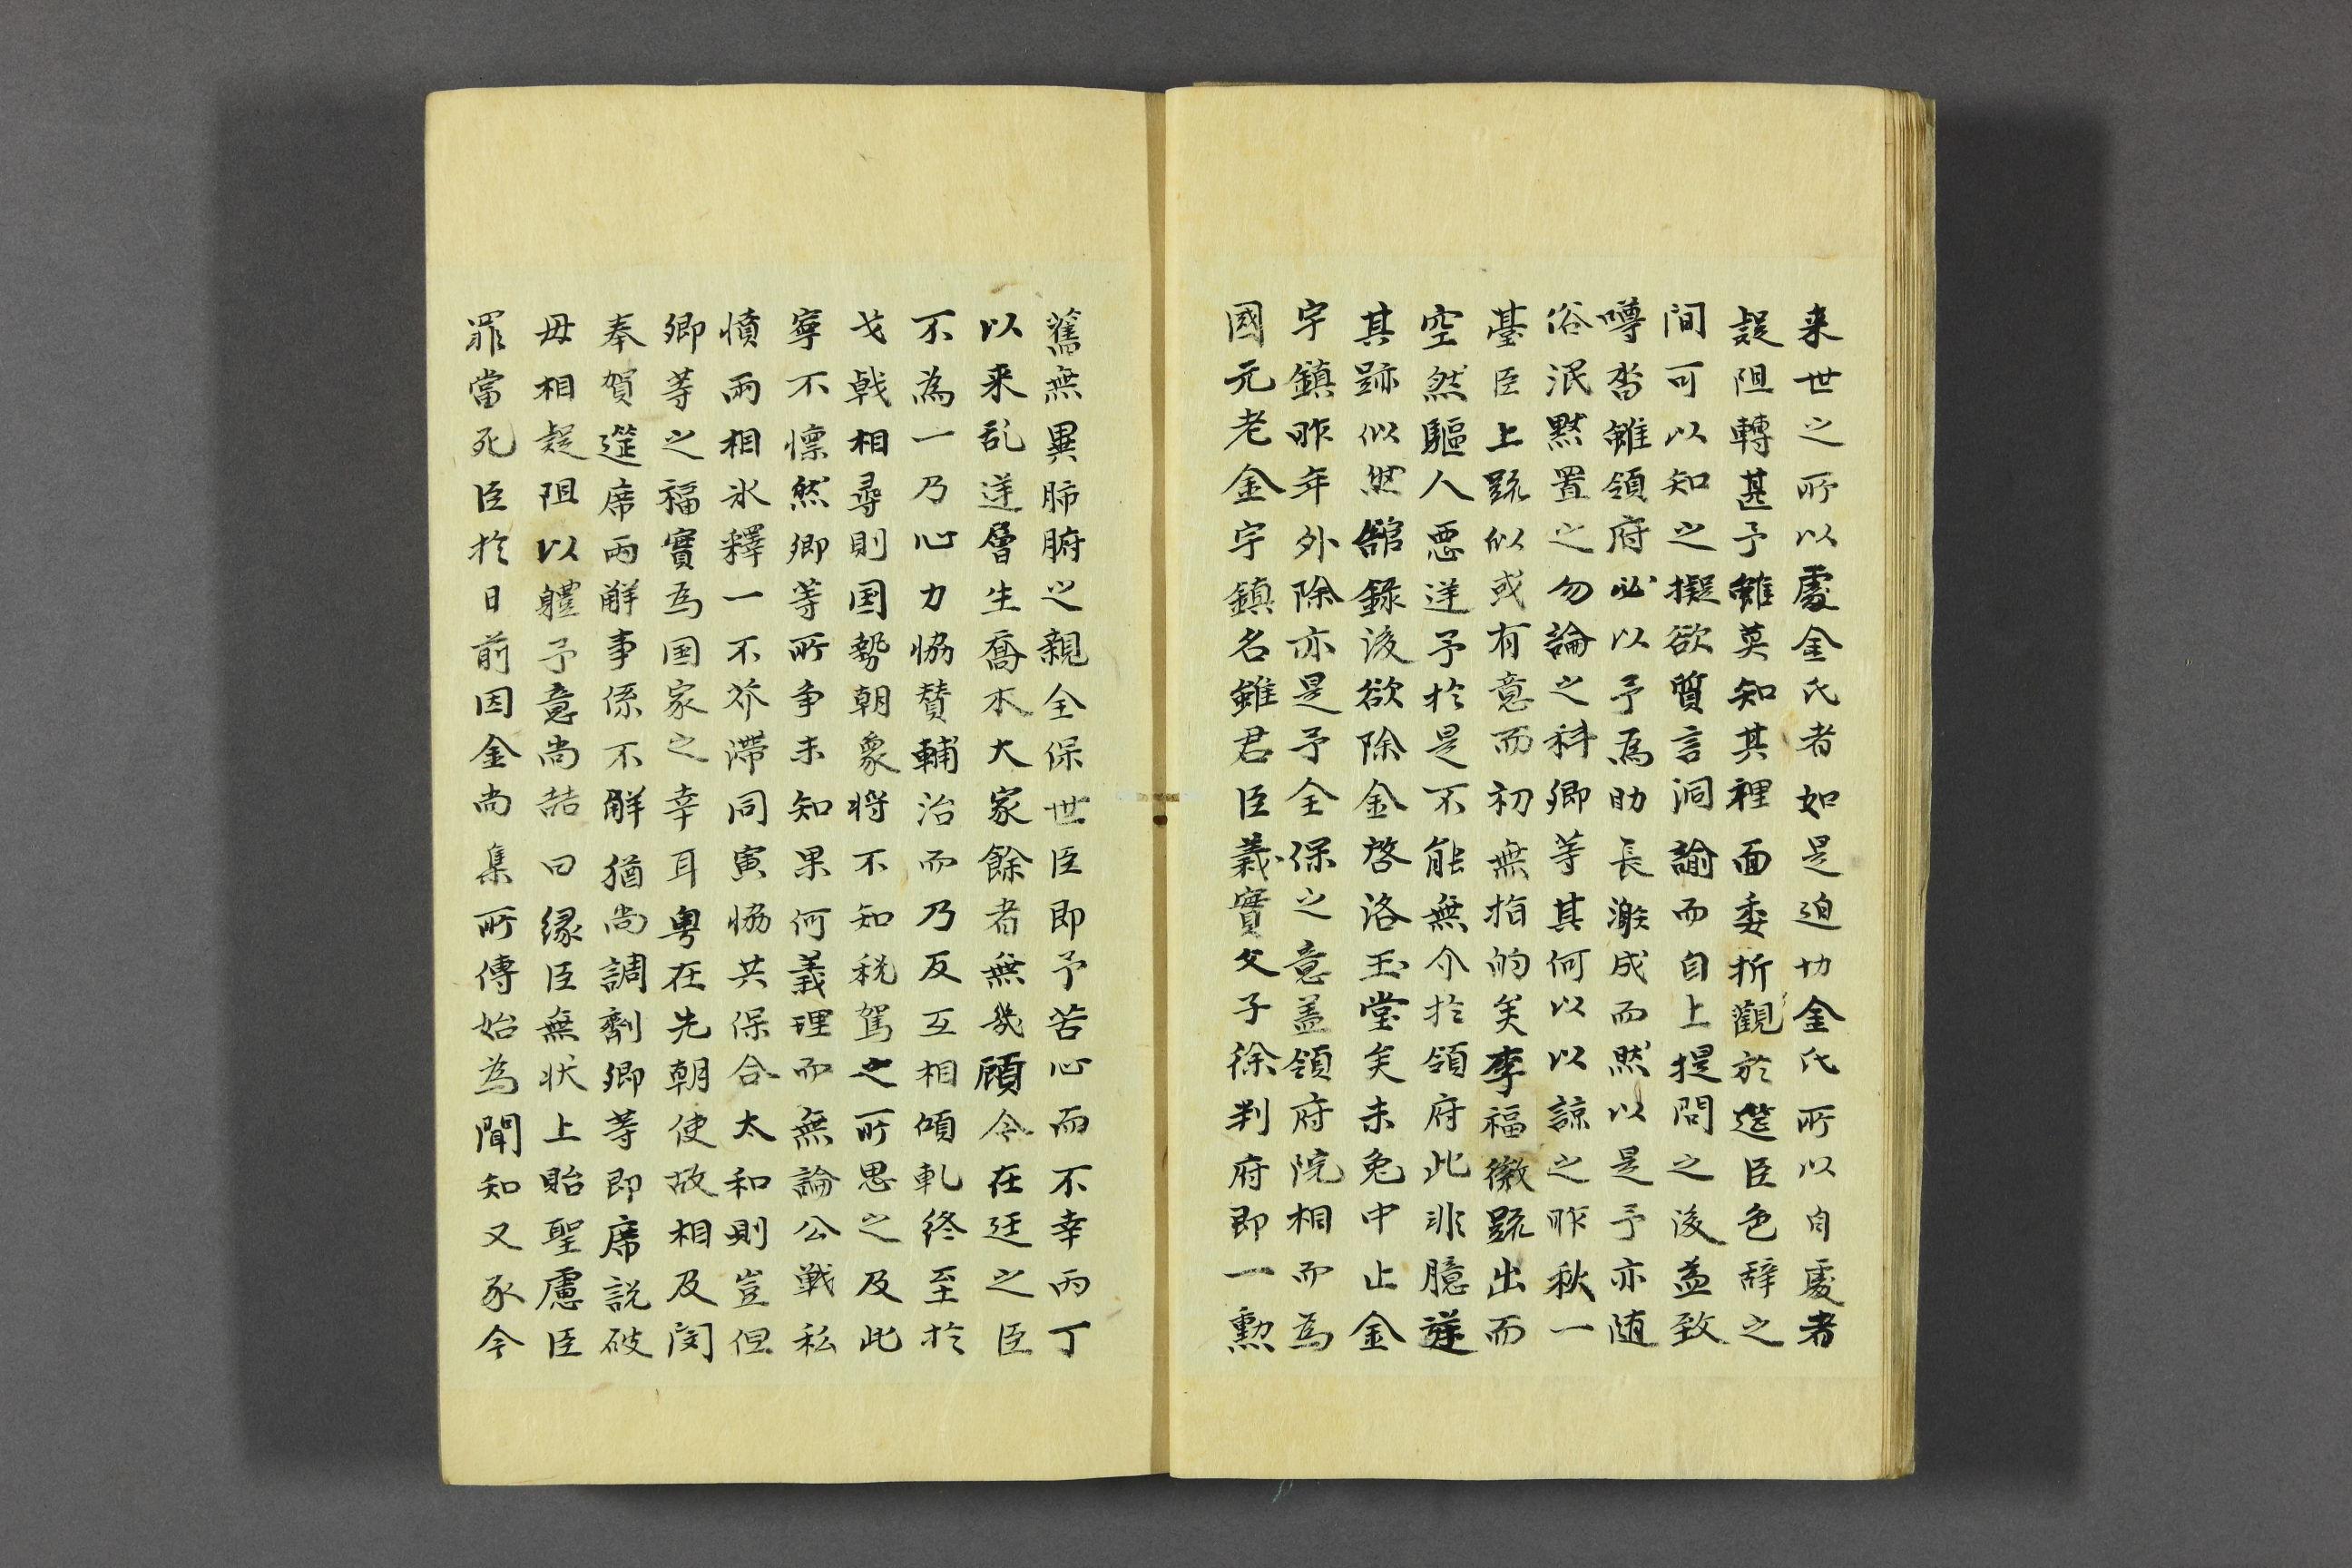 来世之所以處金氏者如是迫切金氏所以自處者
疑阻轉甚予雖莫知其裡面委折觀於筵臣色辭之
間可以知之擬欲質言洞諭而自上提問之後益致
噂沓雖領府必以予為助長漸成而然以是予亦随
俗泯黙置之勿論之科卿等其何以以諒之昨秋一
䑓臣上䟽似或有意而初無指的矣李福徽䟽出而
空然驅人惡逆予於是不能無介於領府此非臆逆
其跡似然舘錄後欲除金啓洛玉堂矣未免中止金
宇鎮昨年外除亦是予全保之意盖領府院相而為
國元老金宇鎮名雖君臣義實父子徐判府即一勲
舊無異肺腑之親全保世臣即予苦心而不幸丙丁
以来乱逆層生喬木大家餘者無幾顧今在廷之臣
不為一乃心力恊賛輔治而乃反互相傾軋終至於
戈戟相尋則国勢朝象将不知税駕之所思之及此
寧不懍然卿等所争未知果何義理而無論公戦私
憤兩相氷釋一不芥滞同寅恊共保合太和則豈但
卿等之福實為国家之幸耳粤在先朝使故相及閔
奉賀筵席兩解事係不解猶尚調劑卿等即席説破
毋相疑阻以軆予意尚喆曰縁臣無状上貽聖慮臣
罪當死臣於日前因金尚集所傳始為聞知又承今